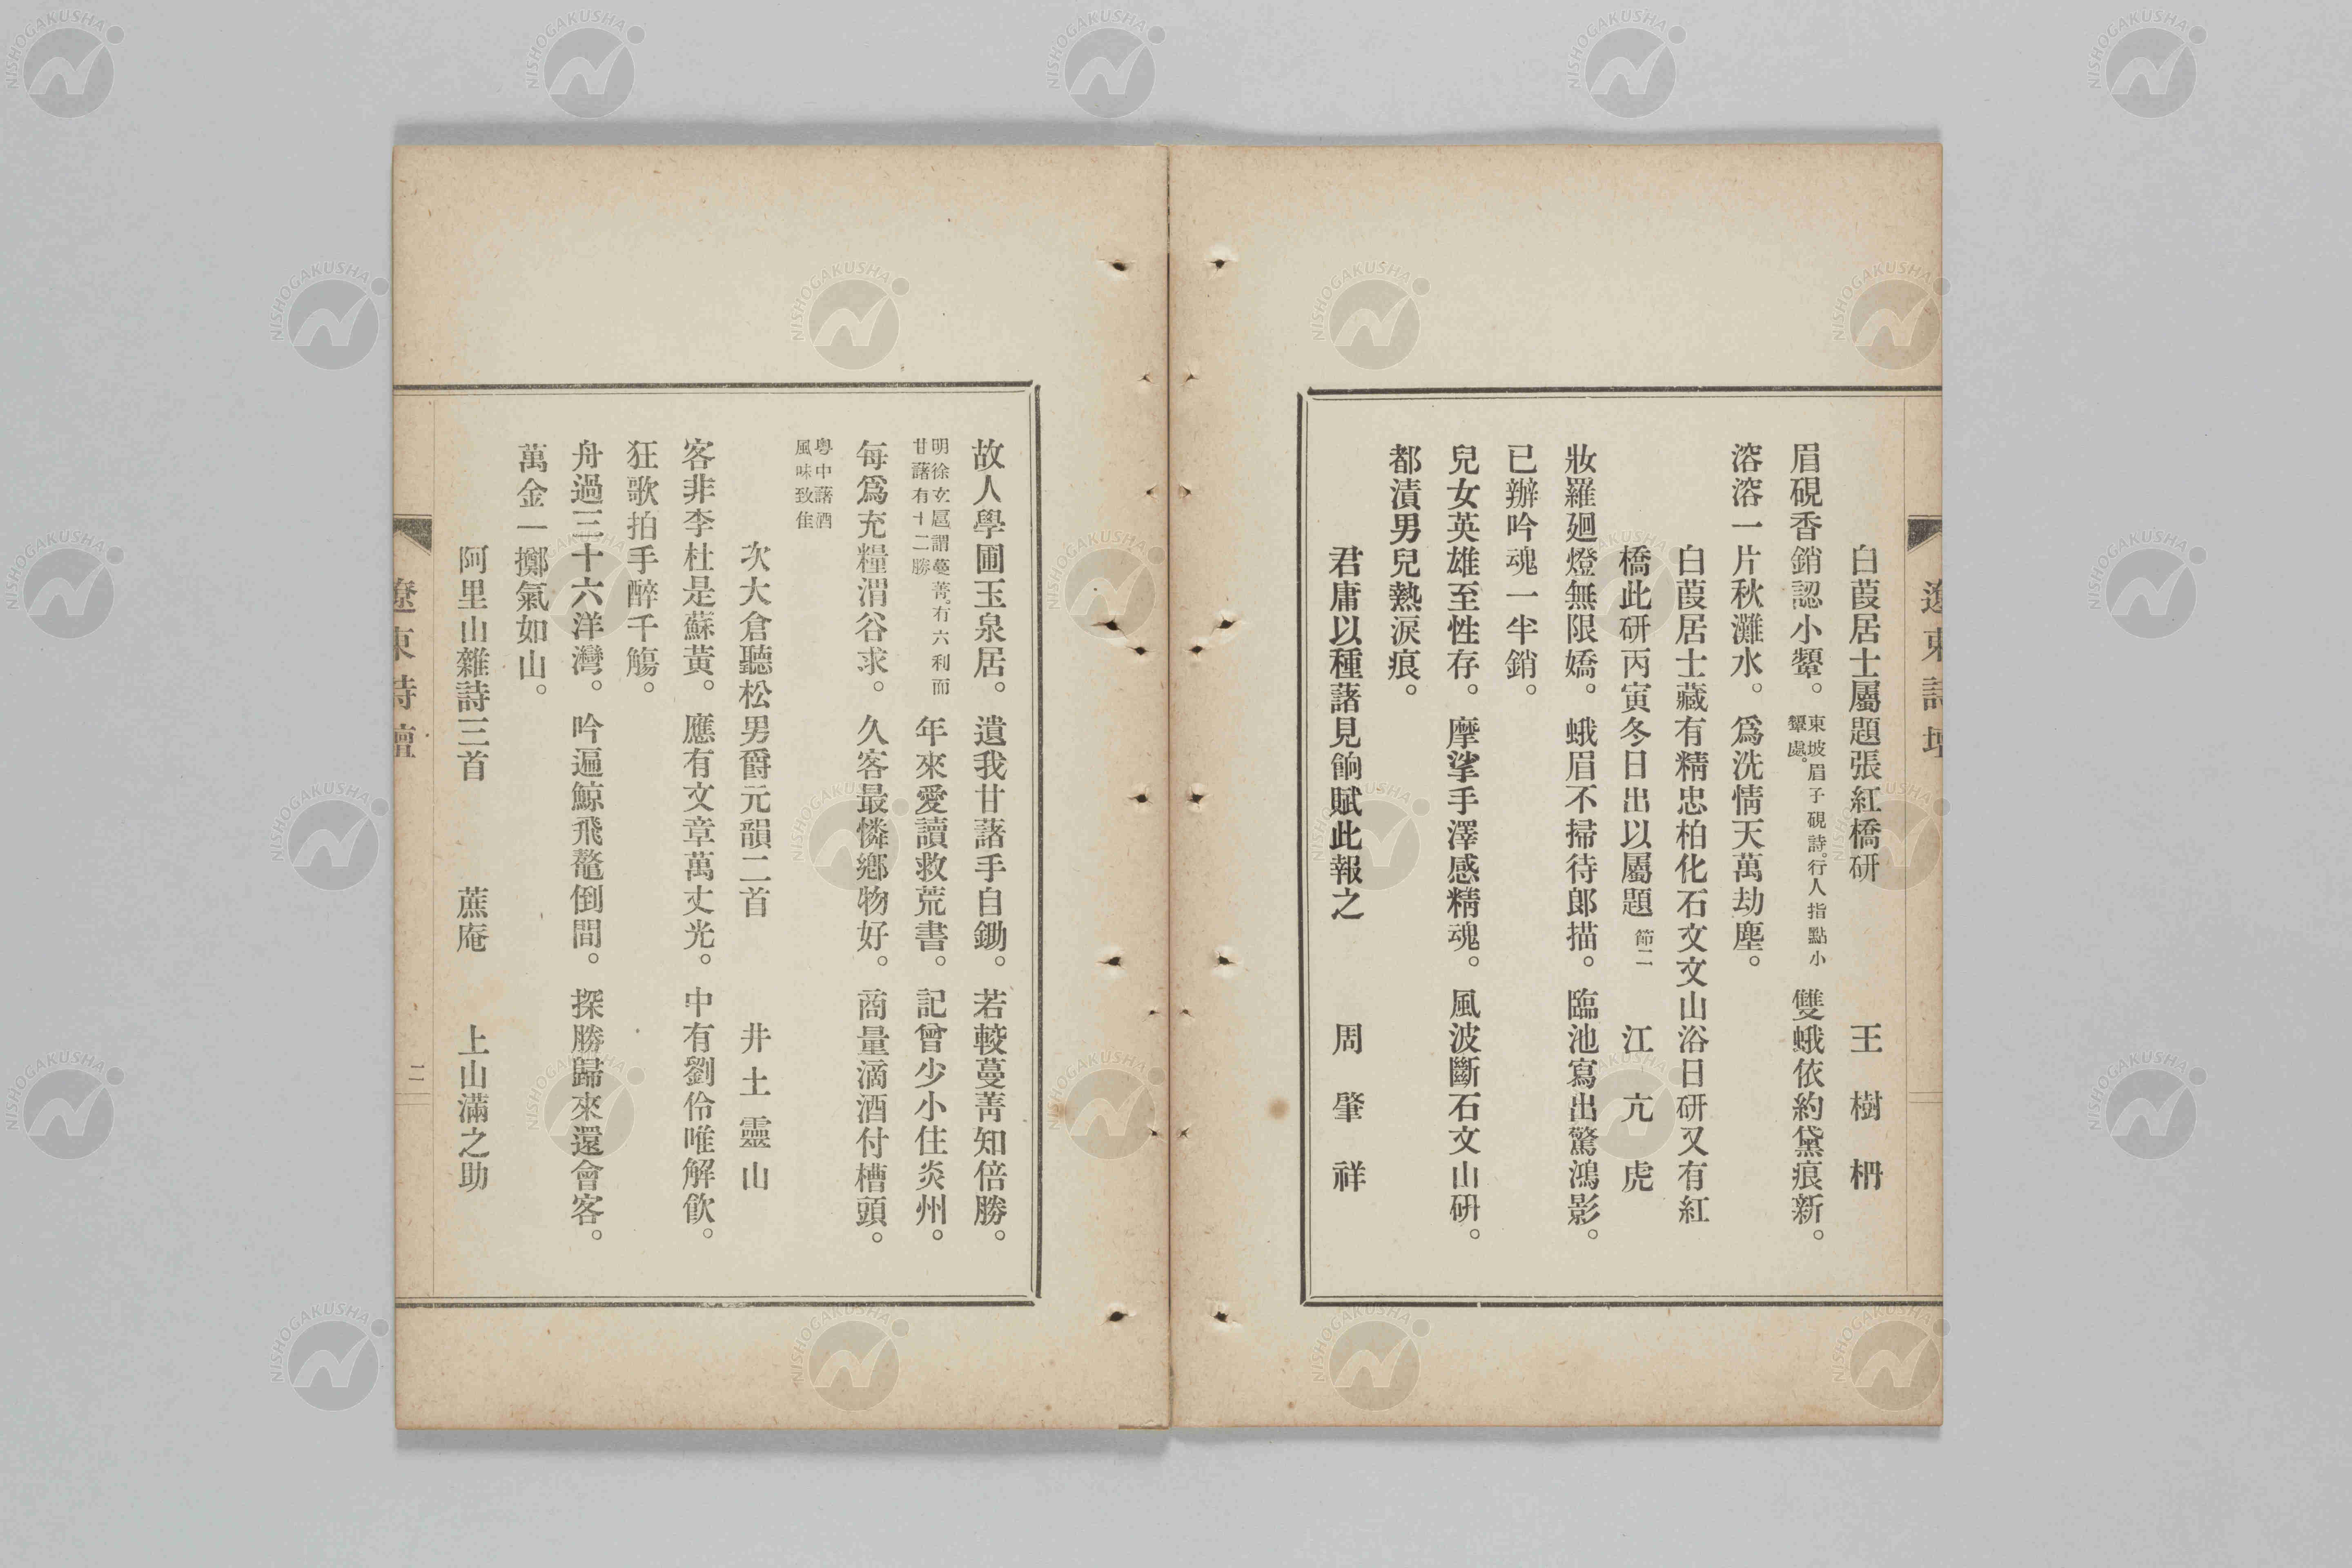 遼東詩壇
白葭居士屬題張紅橋研　王樹枬
眉硯香銷認小顰。東坡眉子硯詩。行人指點小顰處。雙蛾依約黛痕新。
溶溶一片秋灘水。爲洗情天萬劫塵。
白葭居士藏有精忠柏化石文文山浴日研又有紅
橋此研丙寅冬日出以屬題　節二　江亢虎
妝羅廻燈無限嬌。蛾眉不掃待郞描。臨池寫出驚鴻影。
已辦吟魂一半銷。
兒女英雄至性存。摩挲手澤感精魂。風波斷石文山硏。
都漬男兒熱淚痕。
君庸以種蕗見餉賦此報之　周肇祥
故人學圃玉泉居。遺我甘蕗手自鋤。若較蔓菁知倍勝。
明徐玄扈謂蔓菁。有六利而甘藷有十二勝　年來愛讀救荒書。記曾少小住炎州。
每爲充糧渭谷求。久客最憐鄕物好。商量滴酒付槽頭。
粤中藷酒風味致佳
次大倉聽松男爵元韻二首　井土靈山
客非李杜是蘇黃。應有文章萬丈光。中有劉伶唯解飮。
狂歌拍手醉千觴。
舟過三十六洋灣。吟遍鯨飛鼇倒間。探勝歸來還會客。
萬金一擲氣如山。
阿里山雜詩三首　蔗庵　上山滿之助
遼東詩壇　二